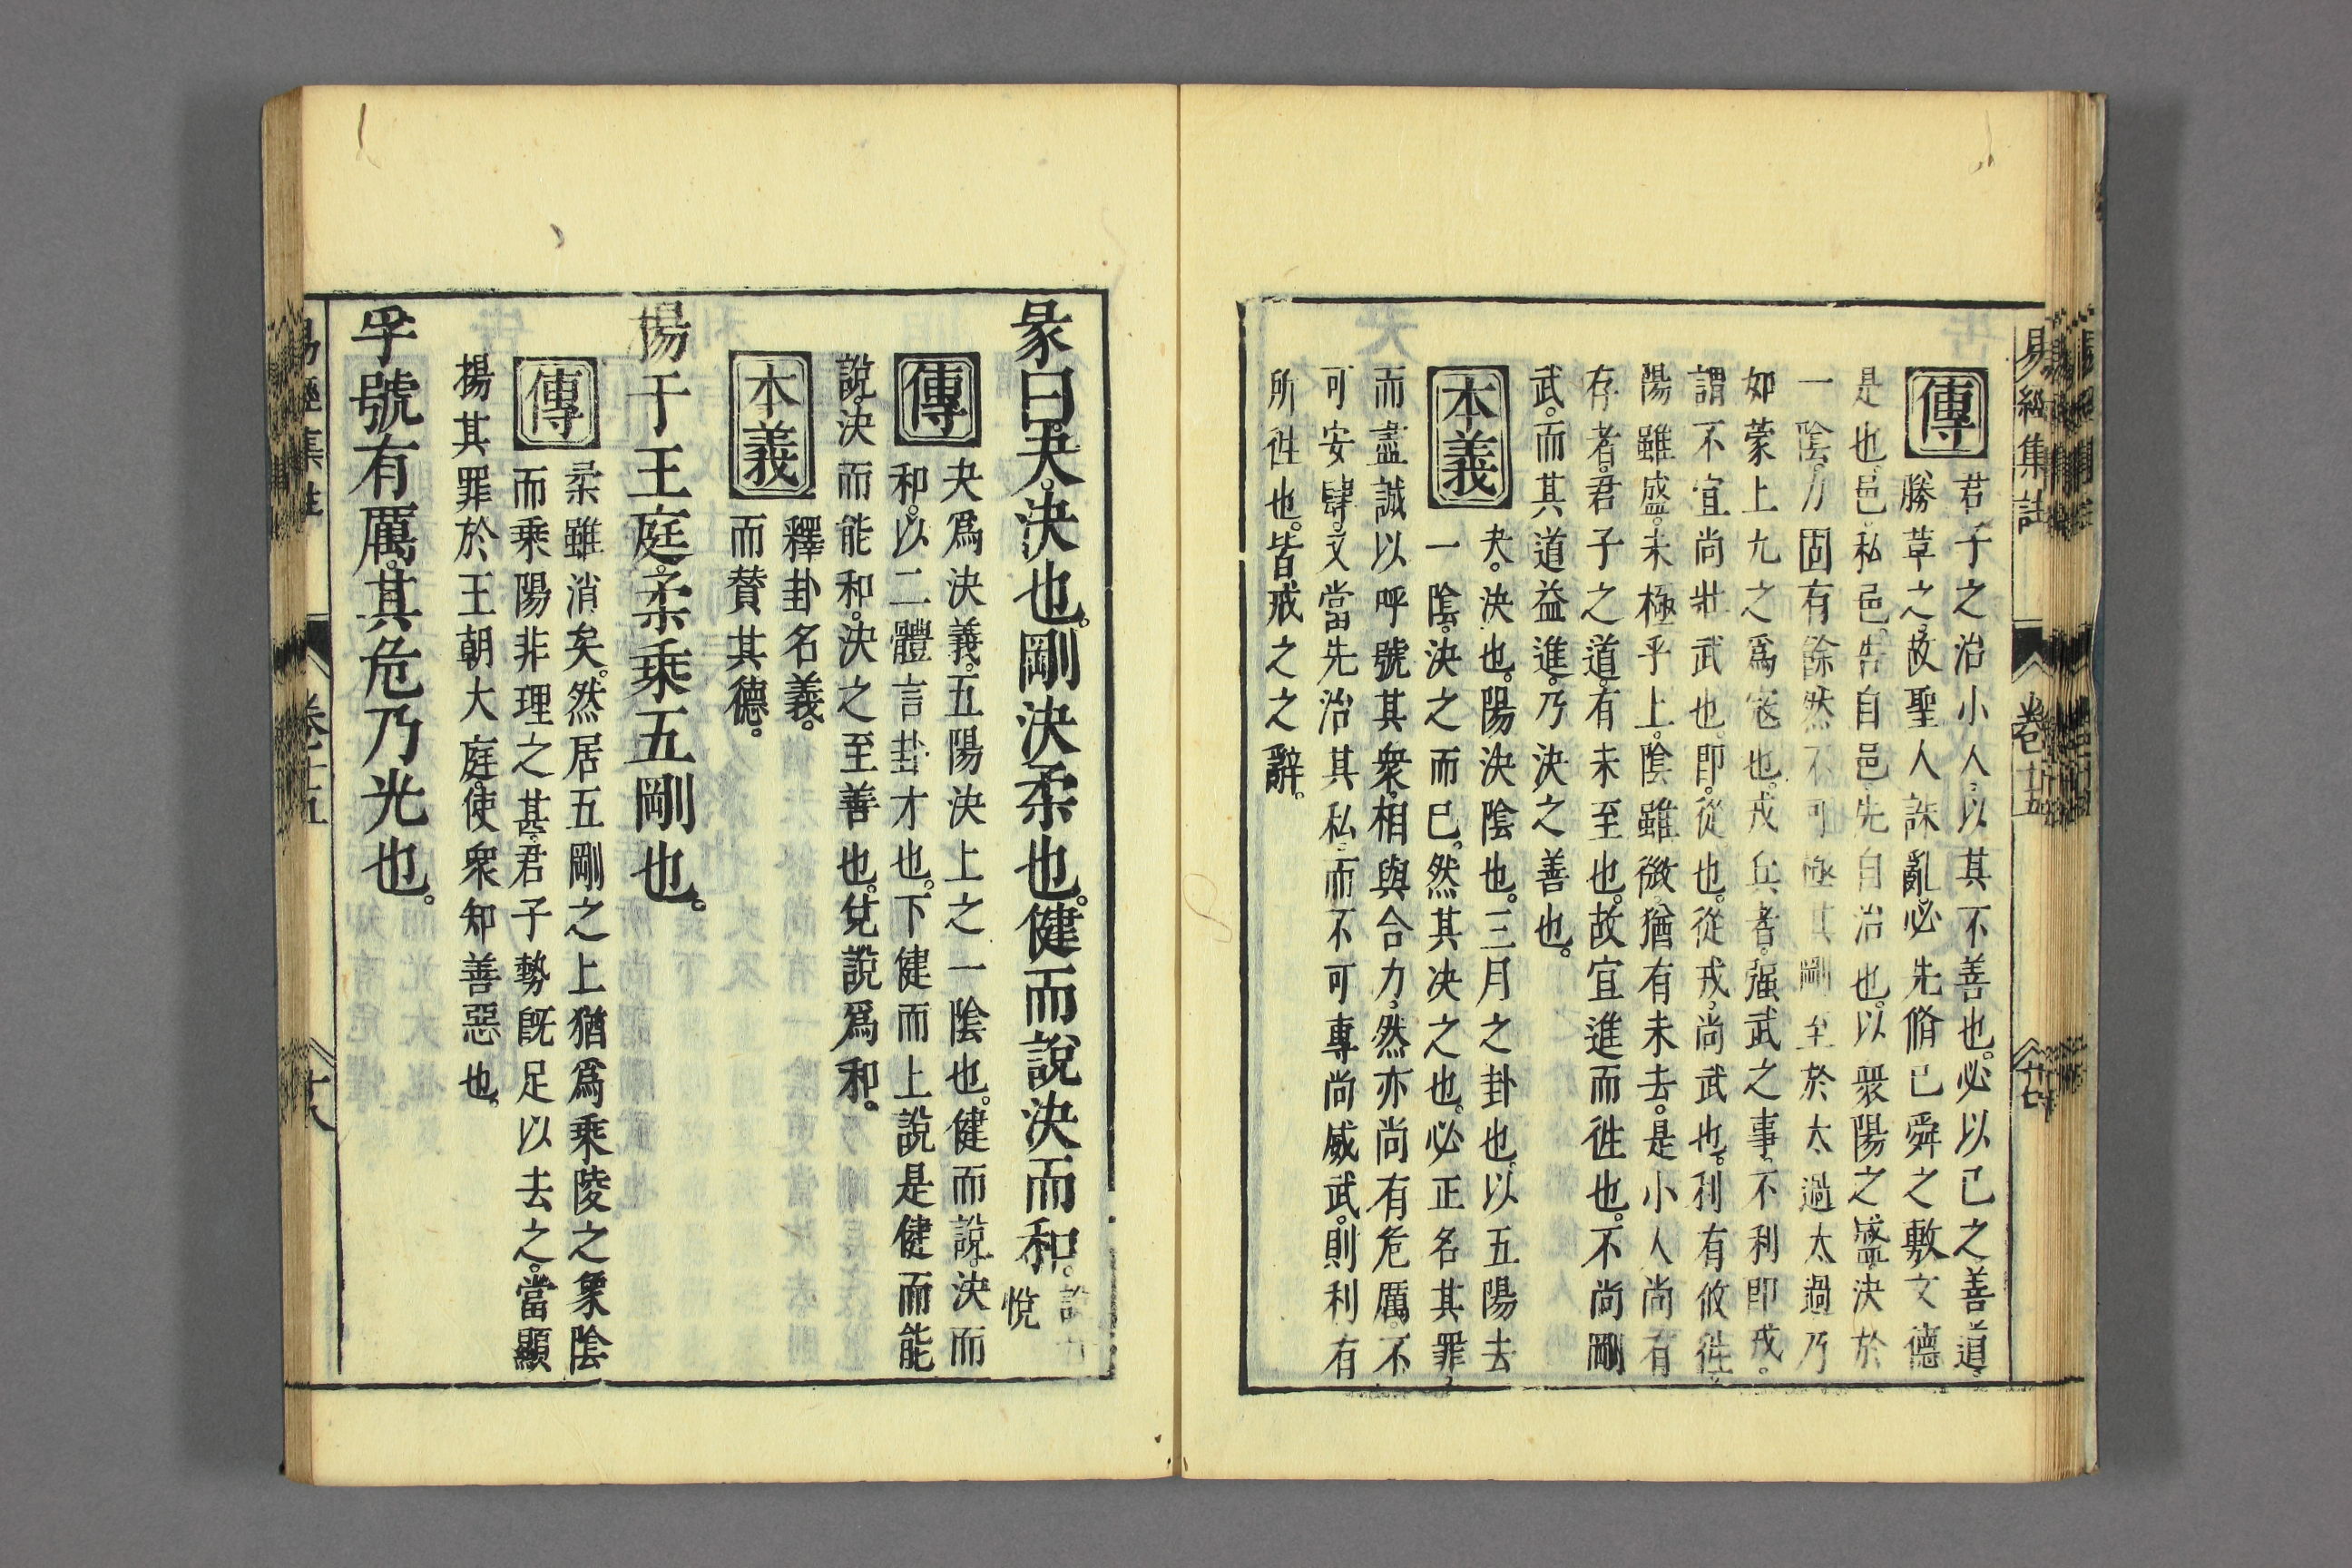 易經集註
卷十五
傳
君子之治小人以其不善也。必以已之善道
勝革之。故聖人誅亂。必先脩已舜之敷文德
是也。邑。私邑。告自邑。先自治也。以衆陽之盛。決於
一陰。力固有餘然不可極其剛至於太過太過乃
如蒙上九之爲寇也。戎兵者。强武之事。不利即戎。
謂不宜尚壯武也。即。從也。從戎。尚武也。利有攸徃
陽雖盛。未極乎上。陰雖微。猶有未去。是小人尚有
存者。君子之道。有未至也。故宜進而徃也。不尚剛
武。而其道益進。乃決之善也。
本義
夬。決也。陽決陰也。三月之卦也。以五陽去
一陰。決之而已。然其决之也。必正名其罪。
而盡誠以呼號其衆。相與合力。然亦尚有危厲。不
可安肆。又當先治其私。而不可專尚威武。則利有
所徃也。皆戒之之辭。
彖曰。夬。決也。剛決柔也。健而說。決而和。
悅
傳
夬爲決義。五陽決上之一陰也。健而說。決而
和。以二體言卦才也。下健而上說是健而能
說。決而能和。決之至善也。兌說爲和。
本義
釋卦名義。
而贊其德。
揚于王庭。柔乘五剛也。
傳
柔雖消矣。然居五剛之上猶爲乘陵之象陰
而乘陽非理之甚。君子勢旣足以去之。當顯
揚其罪於王朝大庭。使衆知善惡也。
孚號有厲。其危乃光也。
卷十五
十八